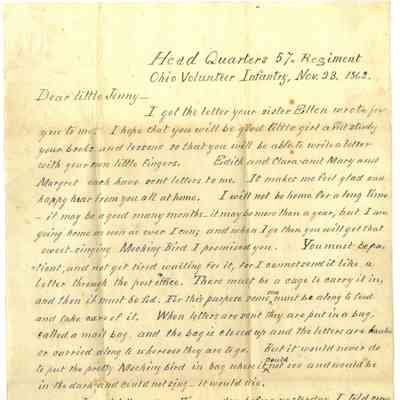 Head Quarters 57th Regiment
Ohio Volunteer Infantry, Nov. 28. 1862.
Dear little Jenny —
I got the letter your sister Ellen wrote for
you to me. I hope that you will be good little girl and study
your books and lessons so that you will be able to write a letter
with your own little fingers. Edith and Clara and Mary and
Margret each have sent letters to me. It makes me feel glad and
happy hear from you all at home. I will not be home for a long time
— it may be a good many months — it may be more than a year, but I am
going home as soon as ever I can, and when I go then you will get that
sweet singing Mocking Bird I promised you. You must be pa-
tient, and not get tired waiting for it, for I cannot send it like a
letter through the post office. There must be a cage to carry it in,
and then it must be fed. For this purpose some one must be along to feed
and take care of it. When letters are sent they are put in a bag,
called a mail bag, and the bag is closed up and the letters are
or carried along to wherever they are to go. But it would never do
to put the pretty Mocking bird in bag where it could not see and would be
in the dark and could not sing — it would die.
yesterday I told